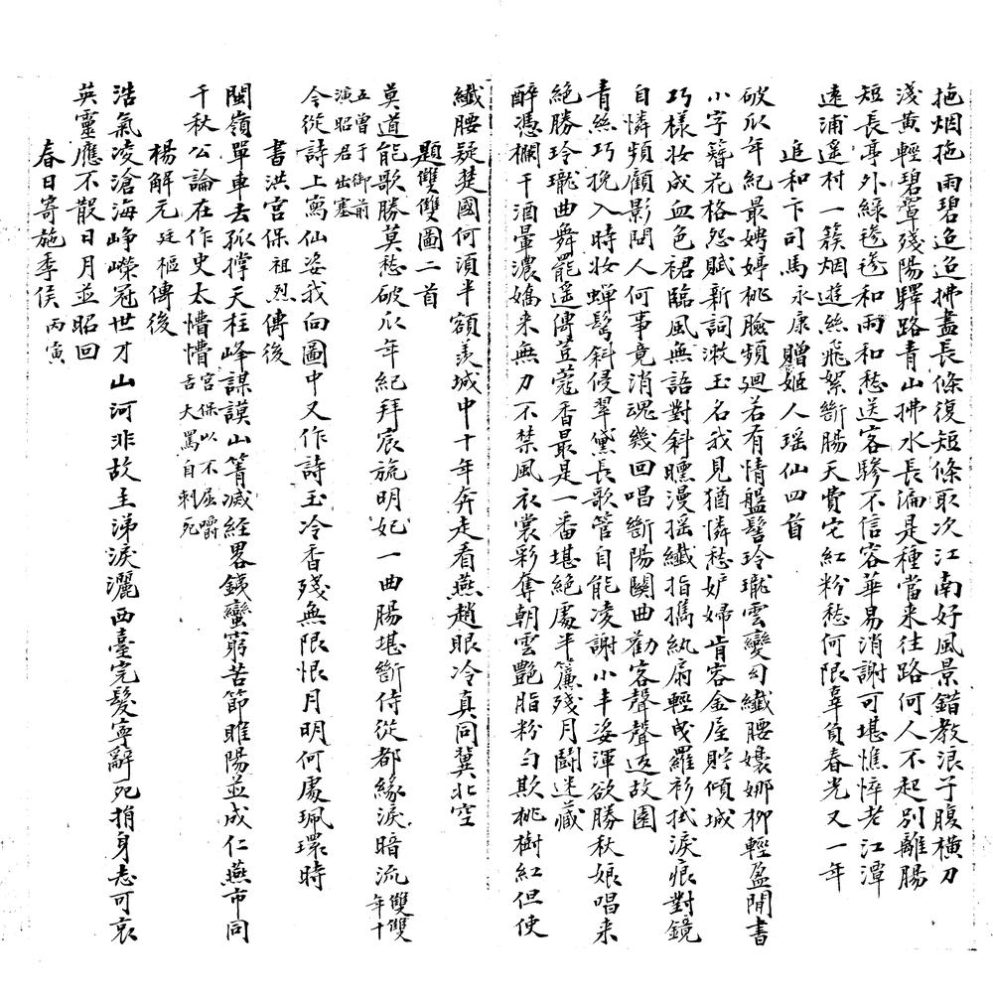 拖烟拖雨碧迢迢拂盡長條復短條取次江南好風景錯教浪子腹橫刀
淺黃輕碧罩殘陽驛路青山拂水長偏是種當来往路何人不起別離腸
短長亭外綠毿毿和雨和愁送客驂不信容華易消謝可堪憔悴老江潭
遠浦遥村一簇烟遊絲飛絮斷腸天費它紅粉愁何限辜負春光又一年
追和卞司馬永康贈姬人瑶仙四首
破瓜年紀最娉婷桃臉頻廻若有情盤髻玲瓏雲變勻纖腰嬝娜柳輕盈閒書
小字簪花格怨賦新詞漱玉名我見猶憐愁妒婦肯容金屋貯傾城
巧樣妆成血色裙臨風無語對斜曛漫摇纖指擕紈扇輕曳羅衫拭淚痕對鏡
自憐頻顧影問人何事竟消魂幾回唱斷陽關曲勸客聲聲返故園
青絲巧挽入時妝蟬鬂斜侵翠黛長歌管自能凌謝小丰姿渾欲勝秋娘唱来
絕勝玲瓏曲舞罷遥傳荳蔻香最是一番堪絕處半簾殘月鬭迷藏
醉憑欄干酒暈濃嬌来無力不禁風衣裳彩奪朝雲艷脂粉勻欺桃樹紅但使
纖腰疑楚國何須半額羡城中十年奔走看燕趙眼冷真同冀北空
題雙雙圖二首
莫道能歌勝莫愁破瓜年紀拜宸旒明妃一曲腸堪斷侍從都緣淚暗流雙雙年十
五曾于御前演昭君出塞
令從詩上寫仙姿我向圖中又作詩玉冷香殘無限恨月明何處珮環時
書洪宫保祖烈傳後
閩嶺單車去孤撑天柱峰謀謨山箐减経畧銕蠻窮苦節睢陽並成仁燕市同
千秋公論在作史太懵懵宫保以不屈嚼舌大罵自刺死
楊解元廷樞傳後
浩氣凌滄海崢嶸冠世才山河非故主涕淚灑西臺完髮寧辭死捐身志可哀
英靈應不散日月並昭回
春日寄施季侯丙寅